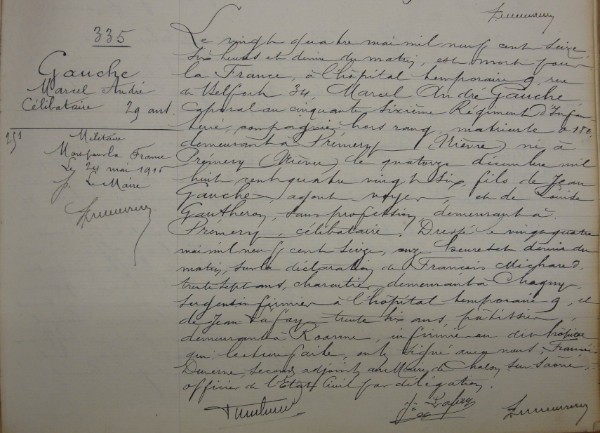 335
Gauche
Marcel André
Célibataire 29 ans
Militaire
Mort pour la France
Le 24 mai 1916
Le Maire
Le vingt quatre mai mil neuf cent seize
six heures et demie du matin, est mort pour
la France, à l'hôpital temporaire 9, rue
de Belfort 34, Marcel André Gauche
caporal au cinquante sixième Régiment d'Infan
terie, compagnie hors rang, matricule
demeurant à Prémery (Nièvre) né à
Prémery (Nièvre) le quatorze décembre mil
huit cent quatre vingt six, fils de Jean
Gauche, adjoint voyer, et de Louise
Gautheron, sans profession, demeurant à
Prémery, célibataire. Dressé le vingt quatre
mai mil neuf cent seize, onze heures et demie du
matin, sur la déclaration de François Michard
trente sept ans, charcutier, demeurant à Chagny
sergent infirmier à l'hôpital temporaire 9, et
de Jean Lafay trente six ans, pâtissier
demeurant à Roanne, infirmier au dit hôpital
qui, lecture faite, ont signé avec nous
second adjoint au Maire de Chalon sur Saône,
officier de l'Etat Civil par délégation.
Lafay